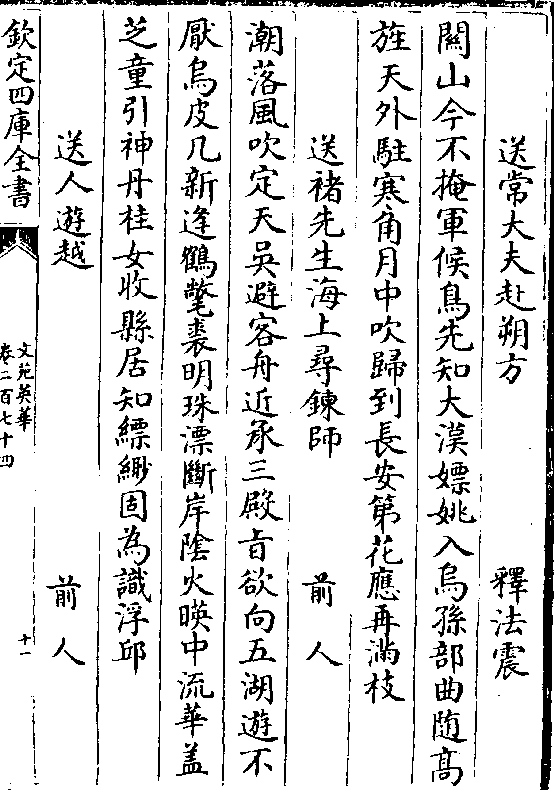 送常大夫赴朔方　釋法震
關山今不掩軍候鳥先知大漠嫖姚入烏孫部曲随髙
旌天外駐寒角月中吹歸到長安第花應再滿枝
送褚先生海上尋錬師　前人
潮落風吹定天吳避客舟近承三殿㫖欲向五湖遊不
厭烏皮几新逢鶴氅裘明珠漂斷岸陰火暎中流華盖
芝童引神丹桂女收縣居知縹緲固為識浮邱
送人遊越　前人
欽定四庫全書
文苑英華
卷二百七十四
十一